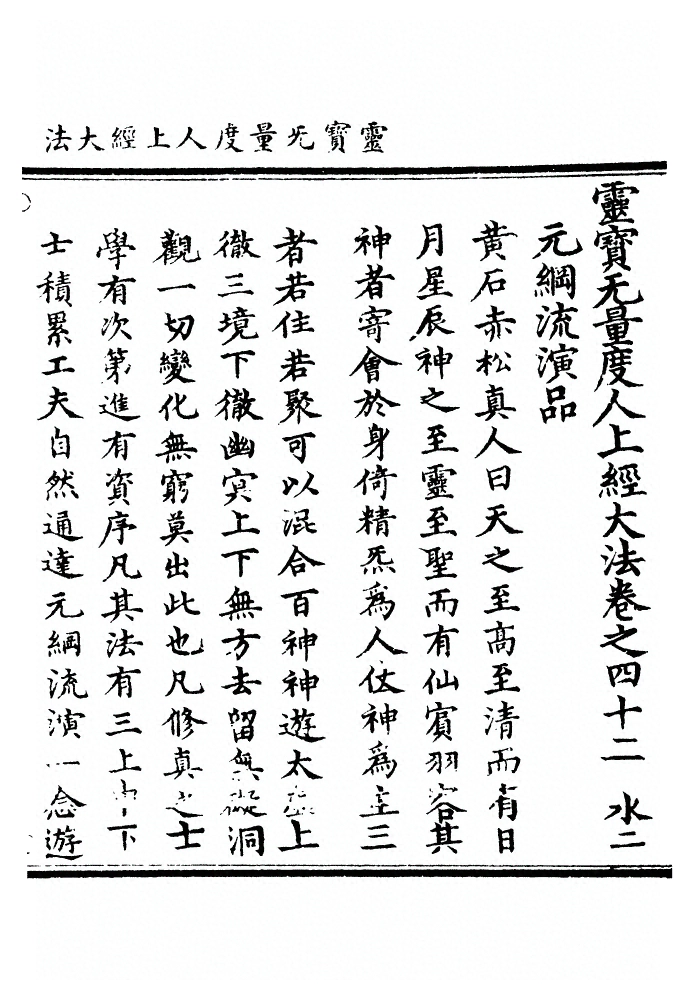 靈寶无量度人上經大法
靈寶无量度人上經大法卷之四十二　水二
元綱流演品
黃石赤松真人曰天之至高至清而有日
月星辰神之至靈至聖而有仙賓羽容其
神者寄會於身倚精炁為人仗神為主三
者若住若聚可以混合百神神遊太虛上
徹三境下徹幽冥上下無方去留無礙洞
觀一切變化無窮莫出此也凡修真之士
學有次第進有資序凡其法有三上中下
士積累工夫自然通達元綱流演一念遊